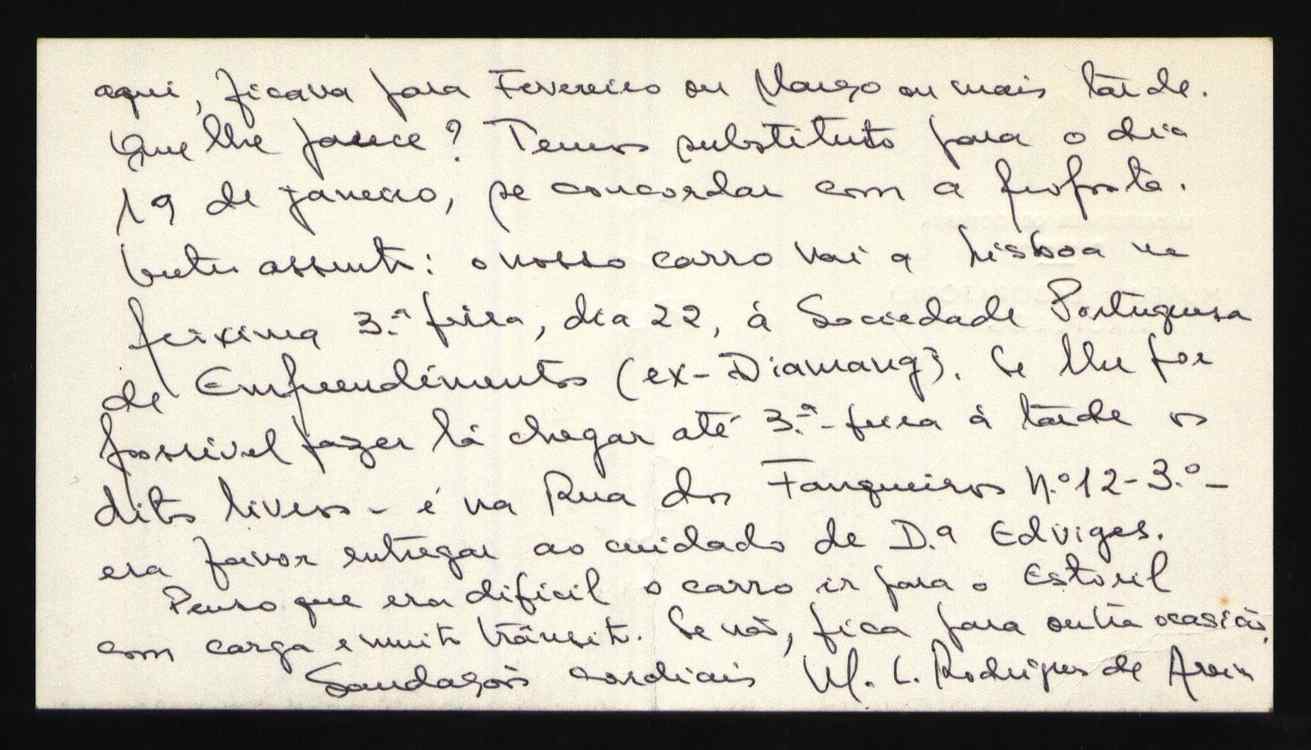 aqui, ficava para Fevereiro ou Março ou mais tarde.
Que lhe parece? Temos substituto para o dia
19 de janeiro, se concordar com a proposta.
Outro assunto: o nosso carro vai a Lisboa na
próxima 3.ª feira, dia 22, à Sociedade Portuguesa
de Empreendimentos (ex-Diamang). Se lhe for
possível fazer lá chegar até 3.ª-feira à tarde os
ditos livros - é na Rua dos Fanqueiros N.º 12-3.º-
era favor entregar ao cuidado de D.ª Edviges.
Penso que era difícil o carro ir para o Estoril
com carga e muito trânsito. Se não, fica para outra ocasião.
Saudações cordiais M. L. Rodrigues de Areia